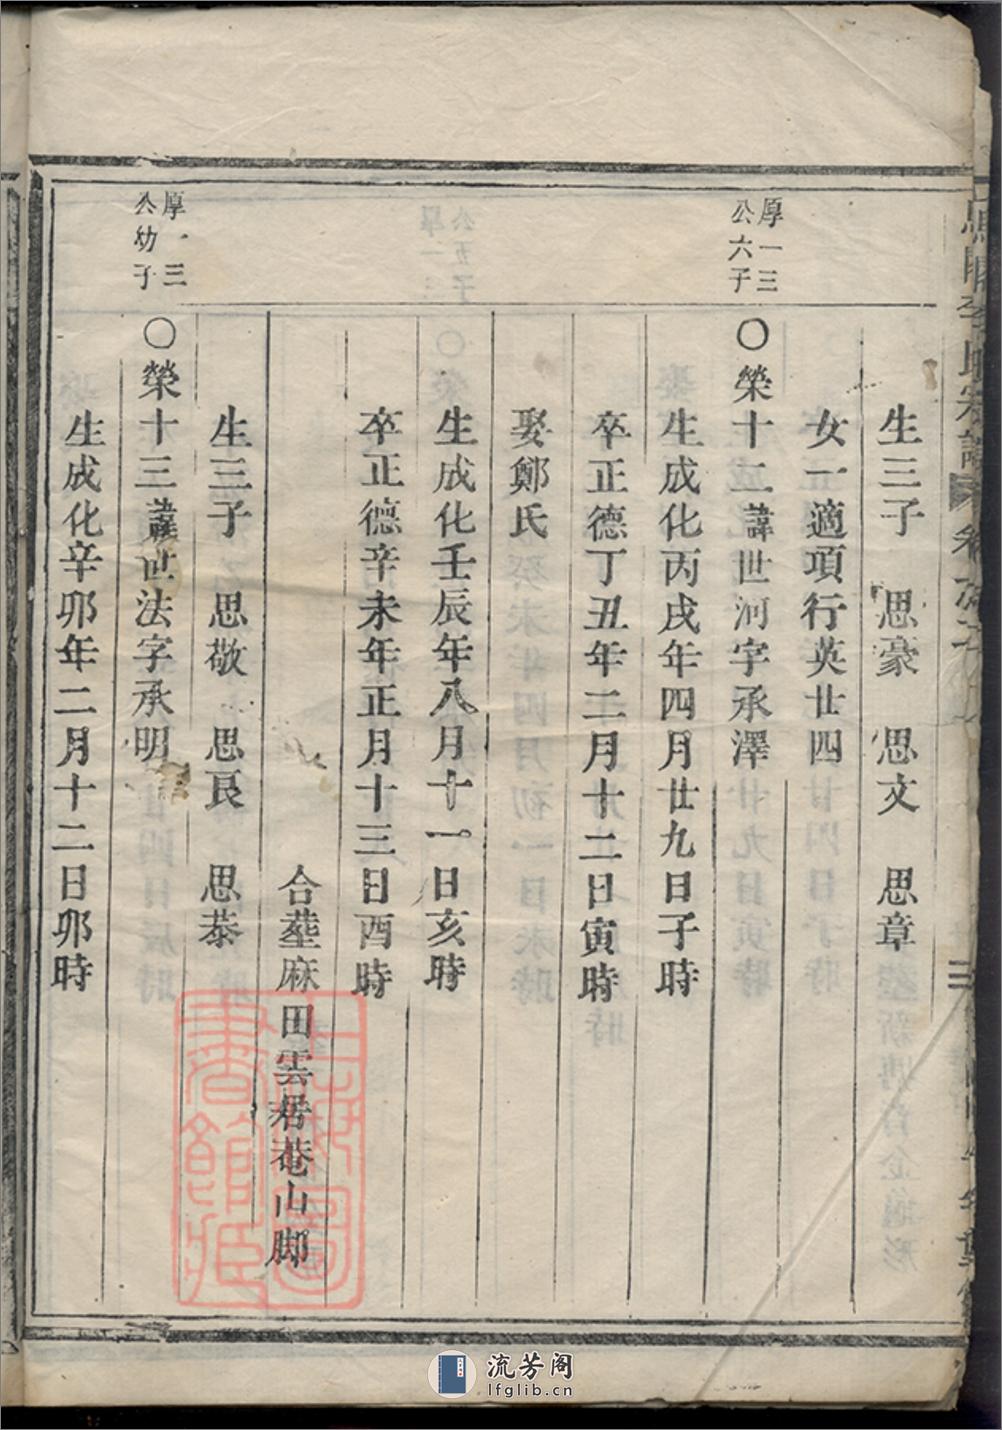 生三子 思豪 思文 思章
女一適項行英廿四
厚一三
公六子
〇榮十二諱世河字承澤
生成化丙戌年四月廿九日子時
卒正德丁丑年二月十二日寅時
娶鄭氏
生成化壬辰年八月十一日亥時
卒正德辛未年正月十三日酉時
合塟麻田雲居菴山脚
生三子 思敬 思良 思恭
厚一三
公幼子
〇榮十三諱世法字承明
生成化辛卯年二月十二日卯時
上海圖
書館藏
流芳阁
lfglib.cn